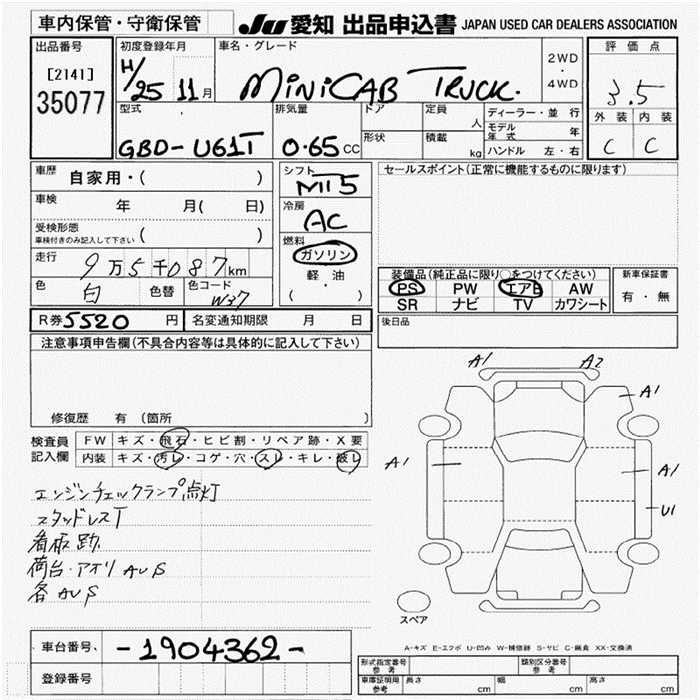 車内保管・守衛保管
JU 愛知 出品申込書 JAPAN USED CAR DEALERS ASSOCIATION
出品番号
[2141]
35077
初度登録年月
H/25 11月
車名・グレード
MINICAB TRUCK.
2WD
・
4WD
評価点
3.5
外装 内装
C C
型式
GBD-U61T
排気量
0.65CC
ドア
形状
定員
人
積載
kg
ディーラー・並行
モデル年式 年
ハンドル 左・右
車歴
自家用・( )
車検
年 月( 日)
受検形態
車検付きのみ記入して下さい ( )
走行
9万5千087km
色
白
色替
色コード
W37
シフト
MT5
冷房
AC
燃料
ガソリン
軽・油
( ・ )
セールスポイント(正常に機能するものに限ります)
装備品(純正品に限り○をつけてください)
PS PW エアB AW
SR ナビ TV カワシート
新車保証書
有・無
R券5520円
名変通知期限 月 日
後日品
注意事項申告欄(不具合内容等は具体的に記入して下さい)
修復歴 有 (箇所
検査員
記入欄
FW キズ・飛石・ヒビ割・リペア跡・X要
内装 キズ・汚レ・コゲ・穴・スレ・キレ・破レ
エンジンチェックランプ点灯
スタッドレスT
看板跡
荷台・アオリ AUS
各AUS
A1 A2
A1
A1
A1
U1
スペア
A-キズ E-エクボ U-凹み W-補修跡 S-サビ C-腐食 XX-交換済
車台番号
-1904362-
登録番号
形式指定番号
参考
類別区分番号
参考
車庫証明用
参考
長さ cm 幅 cm 高さ cm